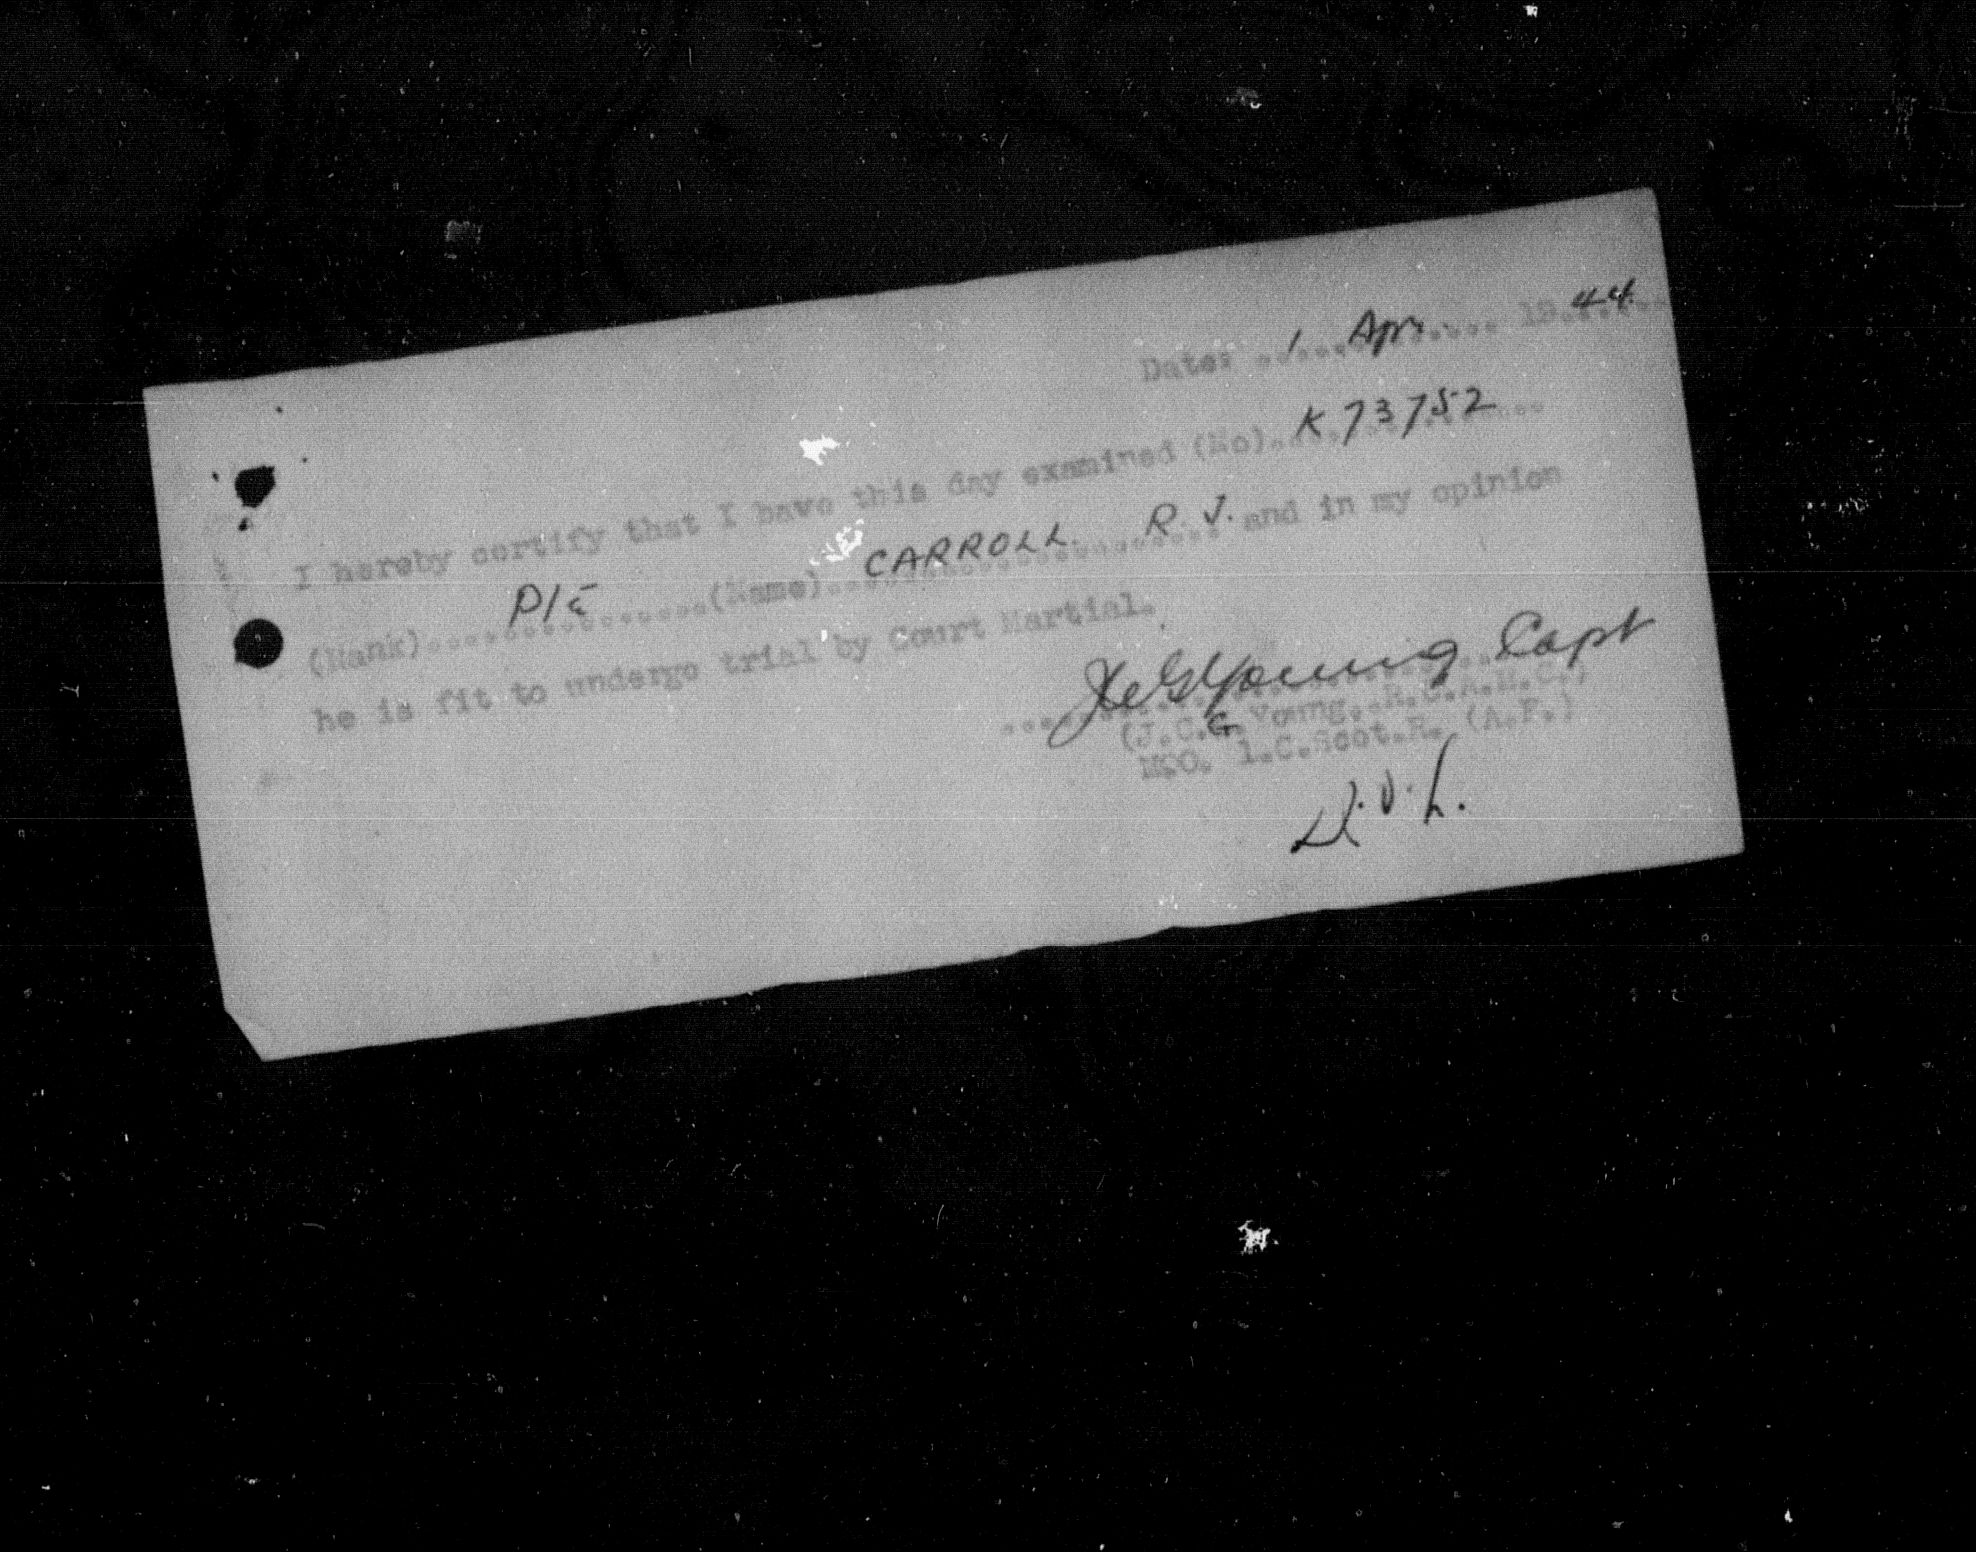 Date: .....1...Apr........ 19.44....
I hereby certify that I have this day examined (No)...K73752...
(Rank)......Pte........(Name)...CARROLL R J. and in my opinion
he is fit to undergo trial by Court Martial.
JCGYoung Capt
(J.C.G. Young. R.C.A.M.C.)
M.O. 1.C.Scot.R. (A.F.)